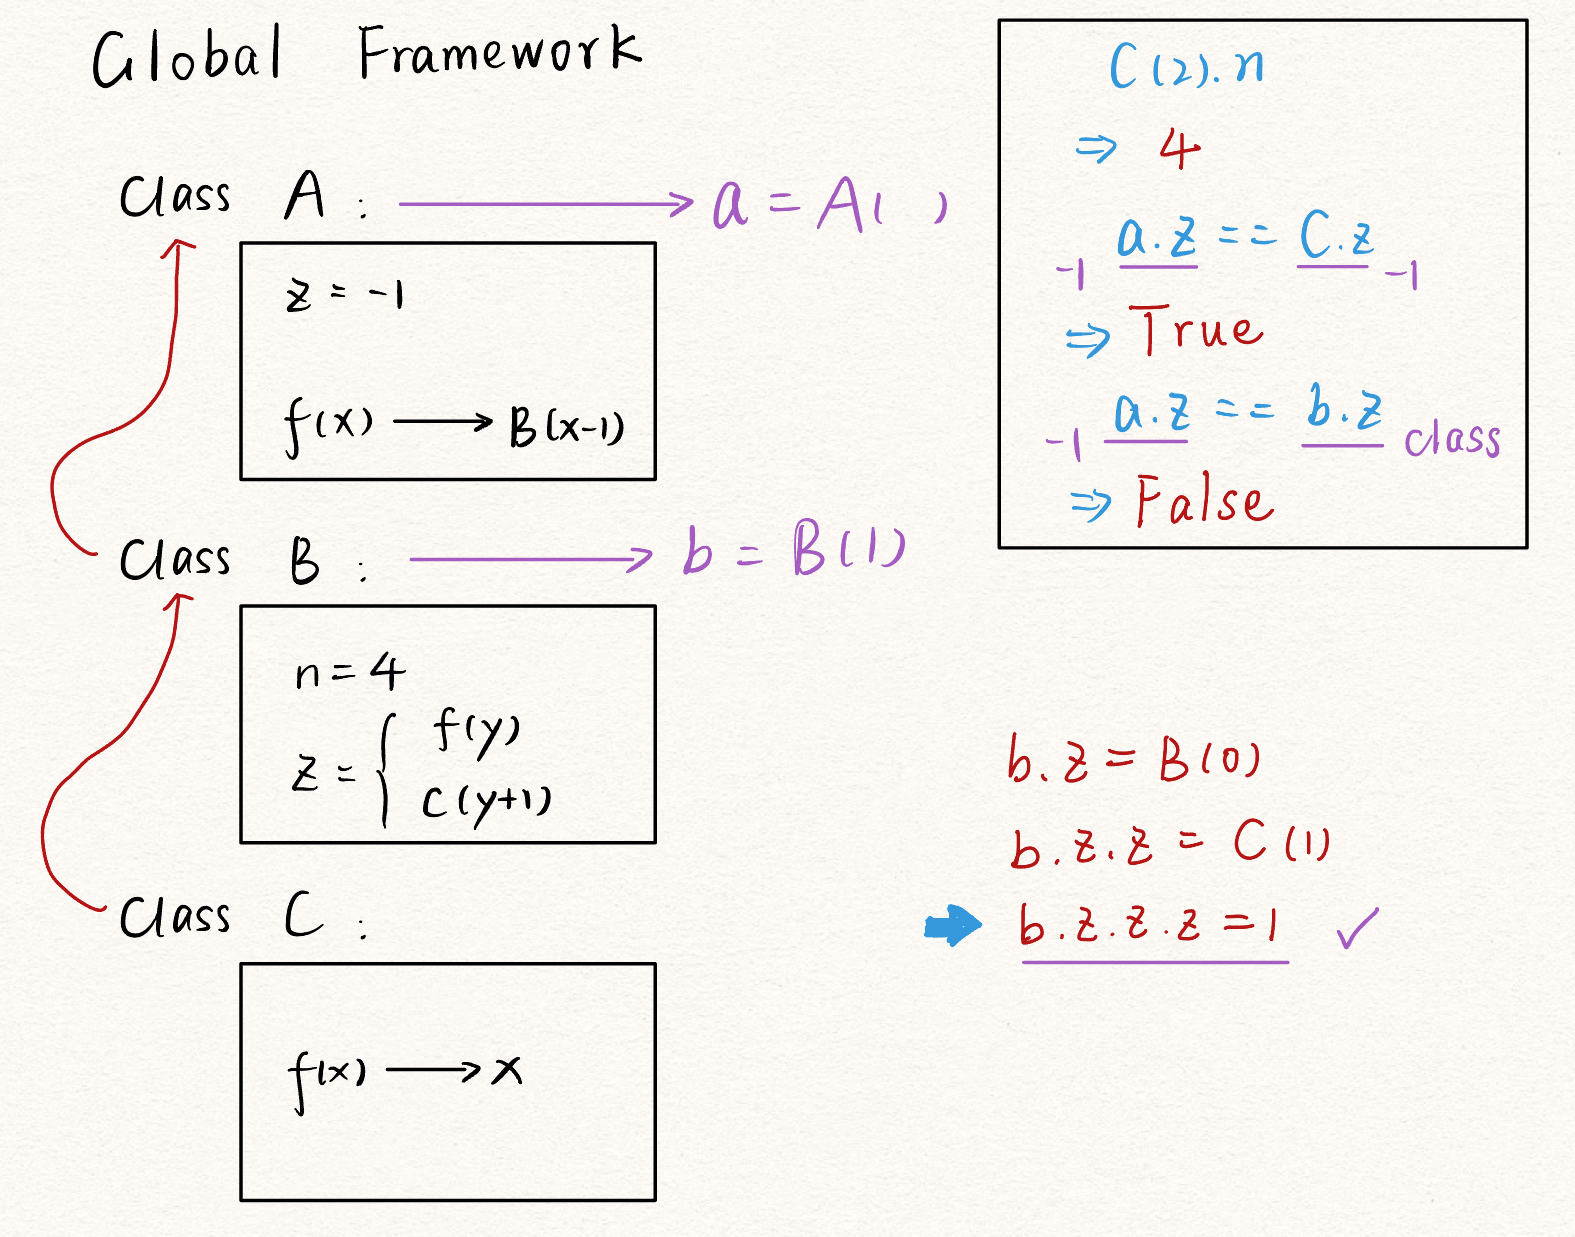 Global Framework
Class A :
a = A( )
z = -1
f(x) ⟶ B(x-1)
Class B :
b = B(1)
n = 4
z = { f(y)
C(y+1)
Class C :
f(x) ⟶ x
C(2).n
⇒ 4
a.z == C.z
-1 -1
⇒ True
a.z == b.z
-1 class
⇒ False
b.z = B(0)
b.z.z = C(1)
b.z.z.z = 1 ✓